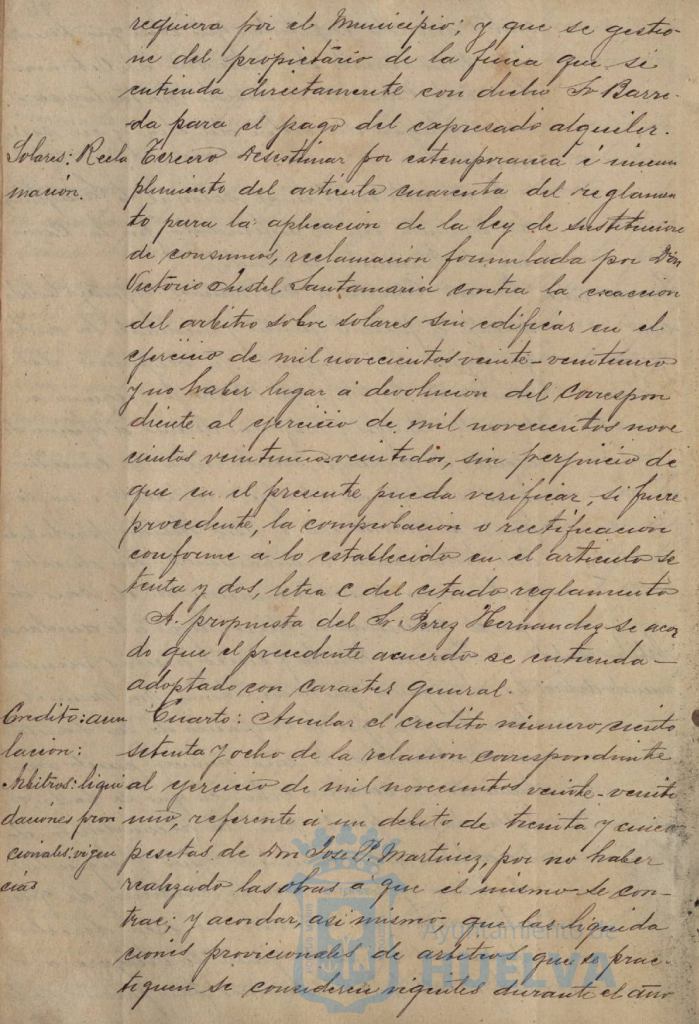 requiera por el Municipio; y que se gestio-
ne del propietario de la finca que se
entienda directamente con dicho Sr Barre-
da para el pago del expresado alquiler.
Solares: Recla
mación.
Tercero Desestimar por extemporanea é incum
plimiento del articulo cuarenta del reglamen
to para la aplicacion de la ley de sustitucion
de consumos, reclamación formulada por Don
Victorio Santamaria contra la exaccion
del arbitro sobre solares sin edificar en el
ejercicio de mil novecientos veinte-veintiuno
y no haber lugar á devolucion del correspon
diente al ejercicio de mil novecientos nove
cientos veintiuno-veintidos, sin perjuicio de
que en el presente pueda verificar, si fuere
procedente, la comprobacion o rectificacion
conforme á lo establecido en el articulo se
tenta y dos, letra C del citado reglamento
A propuesta del Sr Perez Hernandez se acor
do que el precedente acuerdo se entienda-
adoptado con caracter general.
Credito: anu
lacion:
Arbitros: liqui
daciones provi
cionales: vigen
cias
Cuarto: Anular el credito número ciento
setenta y ocho de la relacion correspondiente
al ejercicio de mil novecientos veinte-veinti
uno, referente á un debito de treinta y cinco
pesetas de Don Jose P. Martinez, por no haber
realizado las obras á que el mismo se con-
trae; y acordar, asi mismo, que las liquida
ciones provicionales de arbitros que se prac-
tiquen se consideren vigentes durante el año
Ayuntamiento de
HUELVA